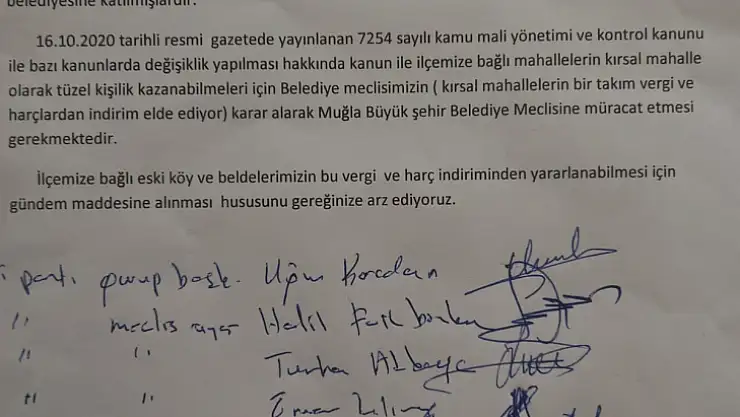 belediyesine katılmışlardır.
16.10.2020 tarihli resmi gazetede yayınlanan 7254 sayılı kamu mali yönetimi ve kontrol kanunu
ile bazı kanunlarda değişiklik yapılması hakkında kanun ile ilçemize bağlı mahallelerin kırsal mahalle
olarak tüzel kişilik kazanabilmeleri için Belediye meclisimizin ( kırsal mahallelerin bir takım vergi ve
harçlardan indirim elde ediyor) karar alarak Muğla Büyük şehir Belediye Meclisine müracat etmesi
gerekmektedir.
İlçemize bağlı eski köy ve beldelerimizin bu vergi ve harç indiriminden yararlanabilmesi için
gündem maddesine alınması hususunu gereğinize arz ediyoruz.
parti gurup başk. Uğur
" meclis üyesi Halil
" " Turhan
" "